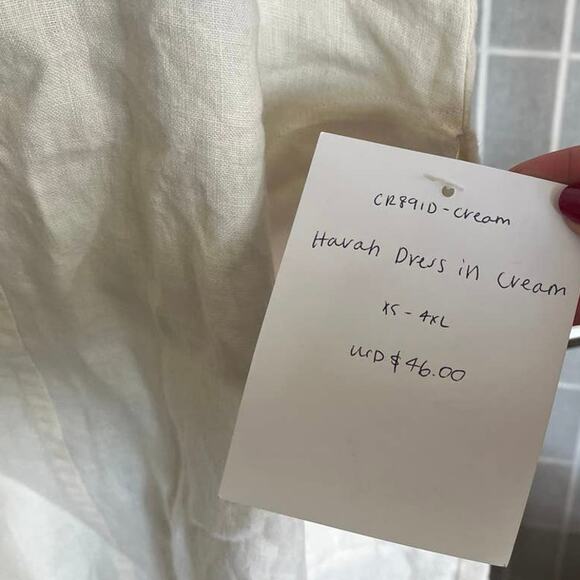 CR891D-Cream
Harah Dress in Cream
XS - 4XL
USD $46.00